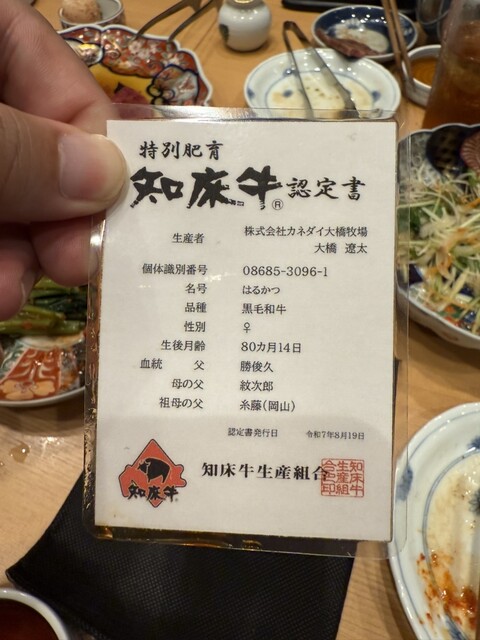 特別肥育
知床牛®認定書
生産者 株式会社カネダイ大橋牧場
大橋 遼太
個体識別番号 08685-3096-1
名号 はるかつ
品種 黒毛和牛
性別 ♀
生後月齢 80カ月14日
血統 父 勝俊久
母の父 紋次郎
祖母の父 糸藤(岡山)
認定書発行日 令和7年8月19日
知床牛®
知床牛生産組合
知床牛
生産組
合之印